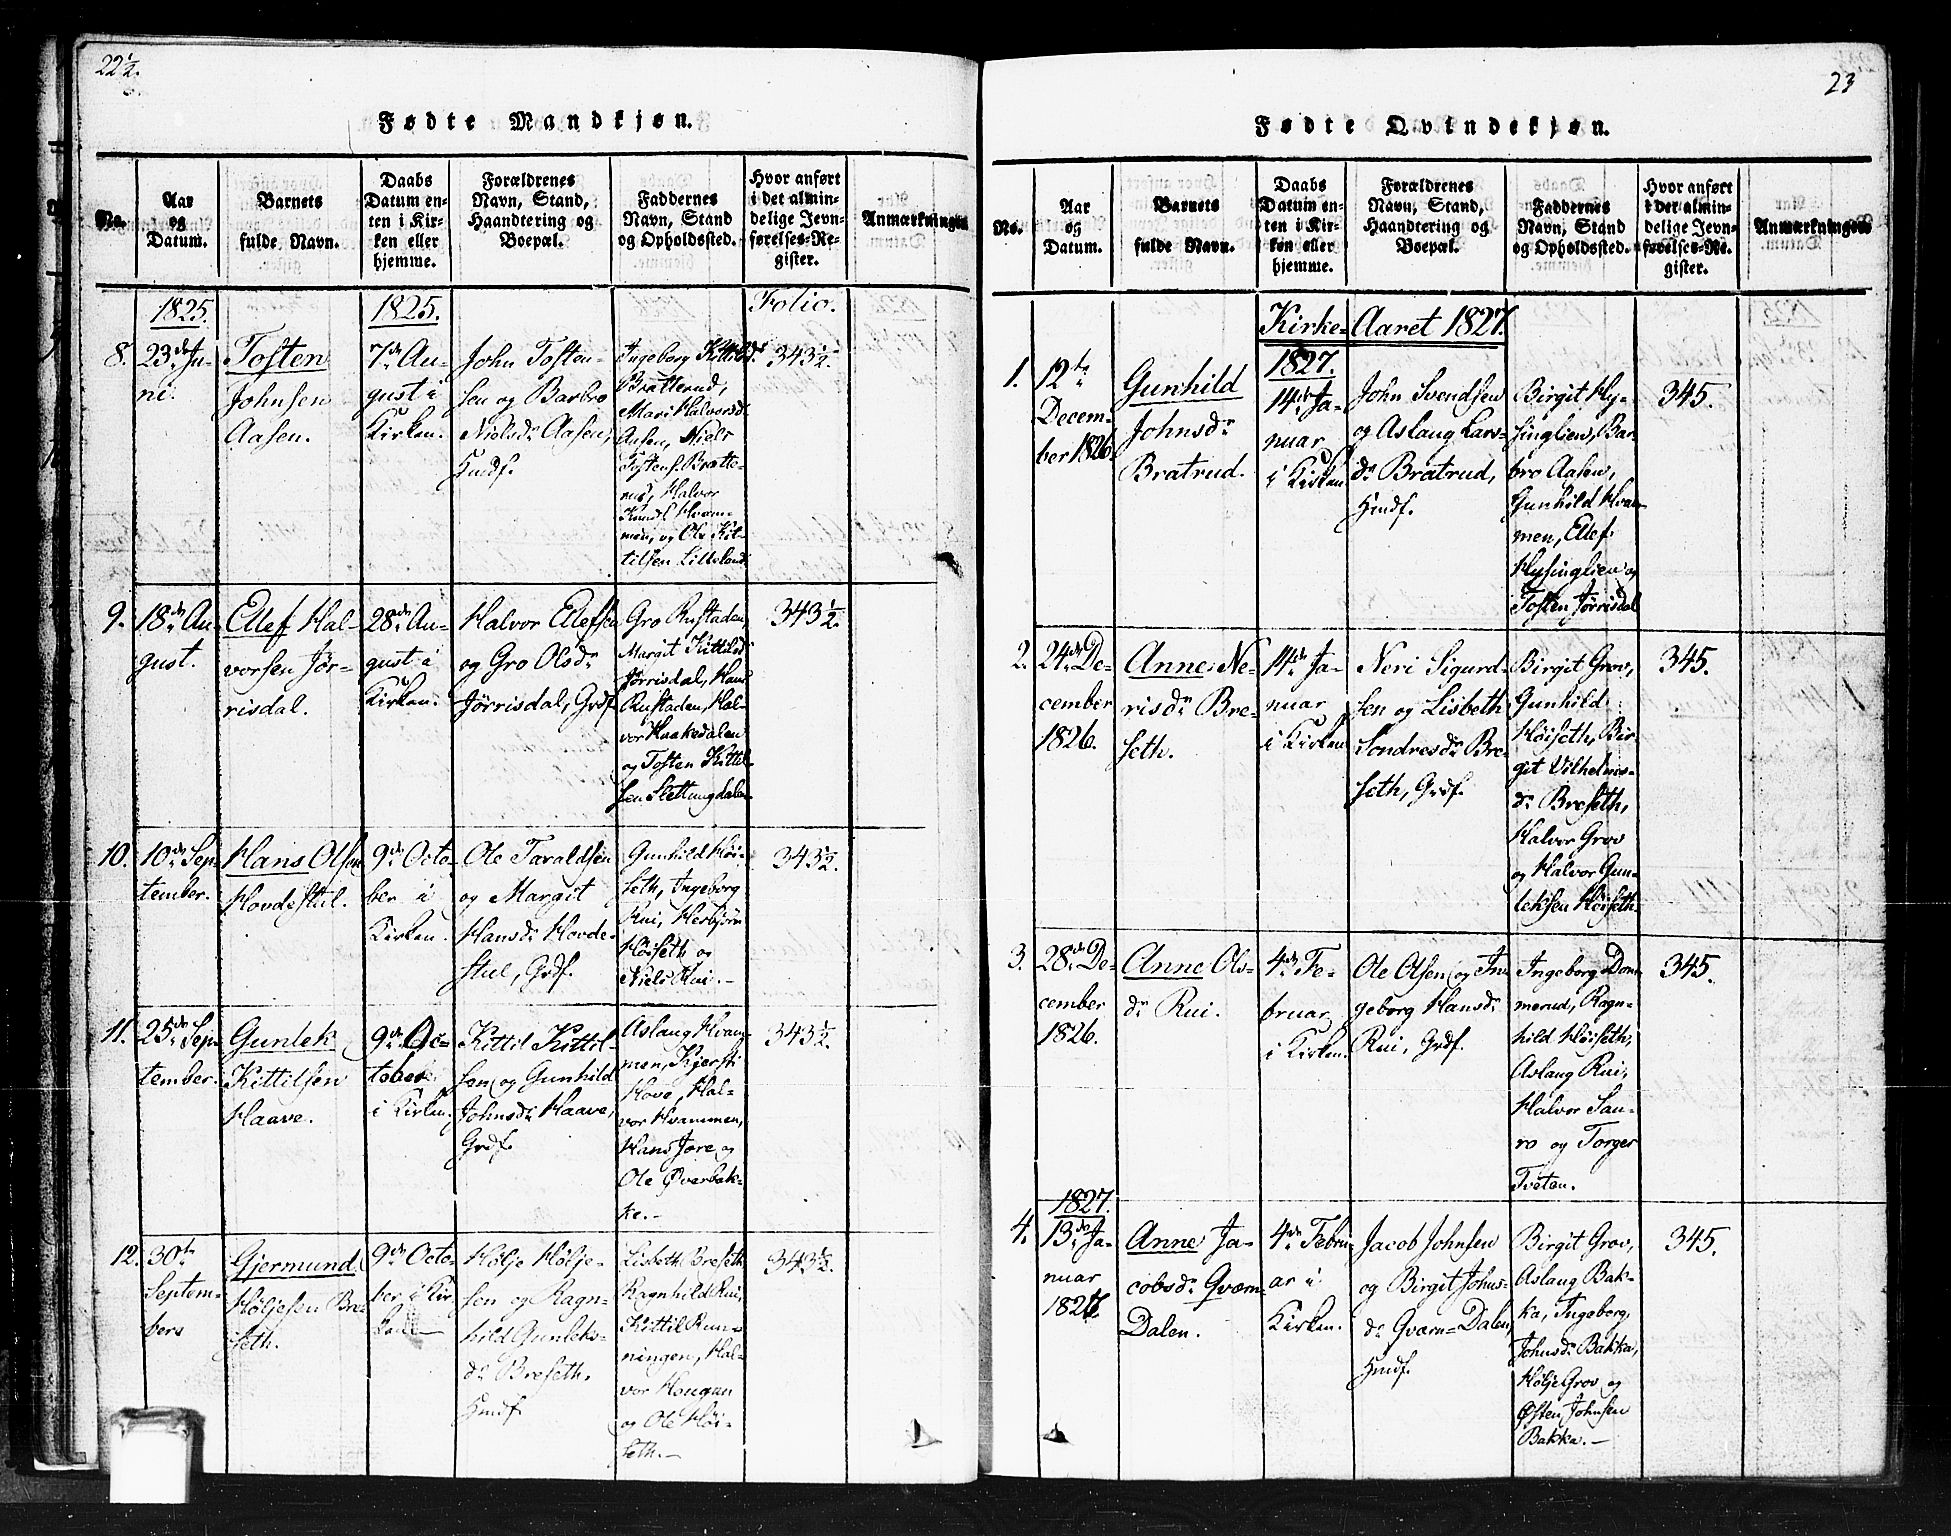 22½.
Fødte Mandkjøn.
No.
Aar
og
Datum.
Barnets
fulde Navn.
Daabs
Datum en-
ten i Kir-
ken eller
hjemme.
Forældrenes
Navn, Stand,
Haandtering og
Boepæl.
Faddernes
Navn, Stand
og Opholdssted.
Hvor anført
i det almin-
delige Jevn-
førelses-Re-
gister.
Anmærkninger.
1825.
1825.
Folio.
8.
23de Ju-
ni.
Tosten
Johnsen
Aasen.
7de Au-
gust i
Kirken.
John Tosten-
sen og Barbro
Nielsdr Aasen,
Hmdf.
Ingeborg Kittilsd.
Bratterud,
Mari Halvorsd.
Aasen, Niels
Tostens. Bratte-
rud, Halvor
Knuds. Hvam-
men, og Ole Kit-
tilsen Lilleland.
343½.
9.
18de Au-
gust.
Ellef Hal-
vorsen Jør-
risdal.
28de Au-
gust i
Kirken.
Halvor Ellefsen
og Gro Olsdr
Jørrisdal, Grdf.
Gro Rustaden,
Margit Kittilsd.
Jørrisdal, Hans
Rustaden, Hal-
vor Haakedalen
og Tosten Kittil-
sen Slettungdalen
343½.
10.
10de Sep-
tember.
Hans Olsen
Hovdestul.
9de Octo-
ber i
Kirken.
Ole Taraldsen
og Margit
Hansdr Hovde-
stul, Grdf.
Gunhild Høi-
seth, Ingeborg
Rui, Herbjørn
Høiseth og
Niels Rui.-
343½.
11.
25de Sep-
tember.
Gunlek
Kittilsen
Haave.
9de Oc-
tober
i Kirken.
Kittil Kittil-
sen og Gunhild
Johnsdr Haave,
Grdf.
Aslaug Hvam-
men, Kjersti
Hove, Hal-
vor Hvammen,
Hans Jore og
Ole Øverbak-
ke.-
343½.
12.
30te
Septem-
ber
Gjermund
Høljesen Bre-
seth.
9de Octo-
ber i Kir-
ken
Hølje Hølje-
sen og Ragn-
hild Gunleks-
dr Breseth.
Hmdf
Lisbeth Breseth,
Ragnhild Rui,
Kittil Run-
ningen, Hal-
vor Haugan
og Ole Høi-
seth.-
343½.
23
Fødte Qvindekjøn.
No.
Aar
og
Datum.
Barnets
fulde Navn.
Daabs
Datum en-
ten i Kir-
ken eller
hjemme.
Forældrenes
Navn, Stand,
Haandtering og
Boepæl.
Faddernes
Navn, Stand
og Opholdssted.
Hvor anført
i det almin-
delige Jevn-
førelses-Re-
gister.
Anmærkninger.
Kirke-Aaret 1827.
1.
12te
Decem-
ber 1826.
Gunhild
Johnsdr
Bratrud.
1827.
14de Ja-
nuar
i Kirken
John Svendsen
og Aslaug Lars-
dr Bratrud,
Hmdf.
Birgit Hy-
singlien, Bar-
bro Aasen,
Gunhild Hvam-
men, Ellef
Hysinglien og
Tosten Jørrisdal
345.
2.
24de De-
cember
1826.
Anne Ne-
risdr Bre-
seth.
14de Ja-
nuar
i Kirken
Neri Sigurd-
sen og Lisbeth
Sondresdr Bre-
seth, Grdf.
Birgit Grov,
Gunhild
Høiseth, Bir-
git Vilhelms-
dr Breseth,
Halvor Grov
og Halvor Gun-
leksen Høiseth.
345.
3.
28de De-
cember
1826.
Anne Ols-
dr Rui.
4de Fe-
bruar
i Kirken.
Ole Olsen og In-
geborg Hansdr
Rui, Grdf.
Ingeborg Dom-
merud, Ragn-
hild Høiseth,
Aslaug Rui,
Halvor Sau-
ro og Torger
Tveten.
345.
4.
1827.
13de Ja-
nuar
1827.
Anne Ja-
cobsdr Qværn-
Dalen.
4de Febru-
ar i
Kirken.
Jacob Johnsen
og Birgit Johns-
dr Qværn-Dalen,
Hmdf.
Birgit Grov,
Aslaug Bak-
ka, Ingeborg
Johnsdr Bakka,
Hølje Grov og
Østen Johnsen
Bakka.-
345.